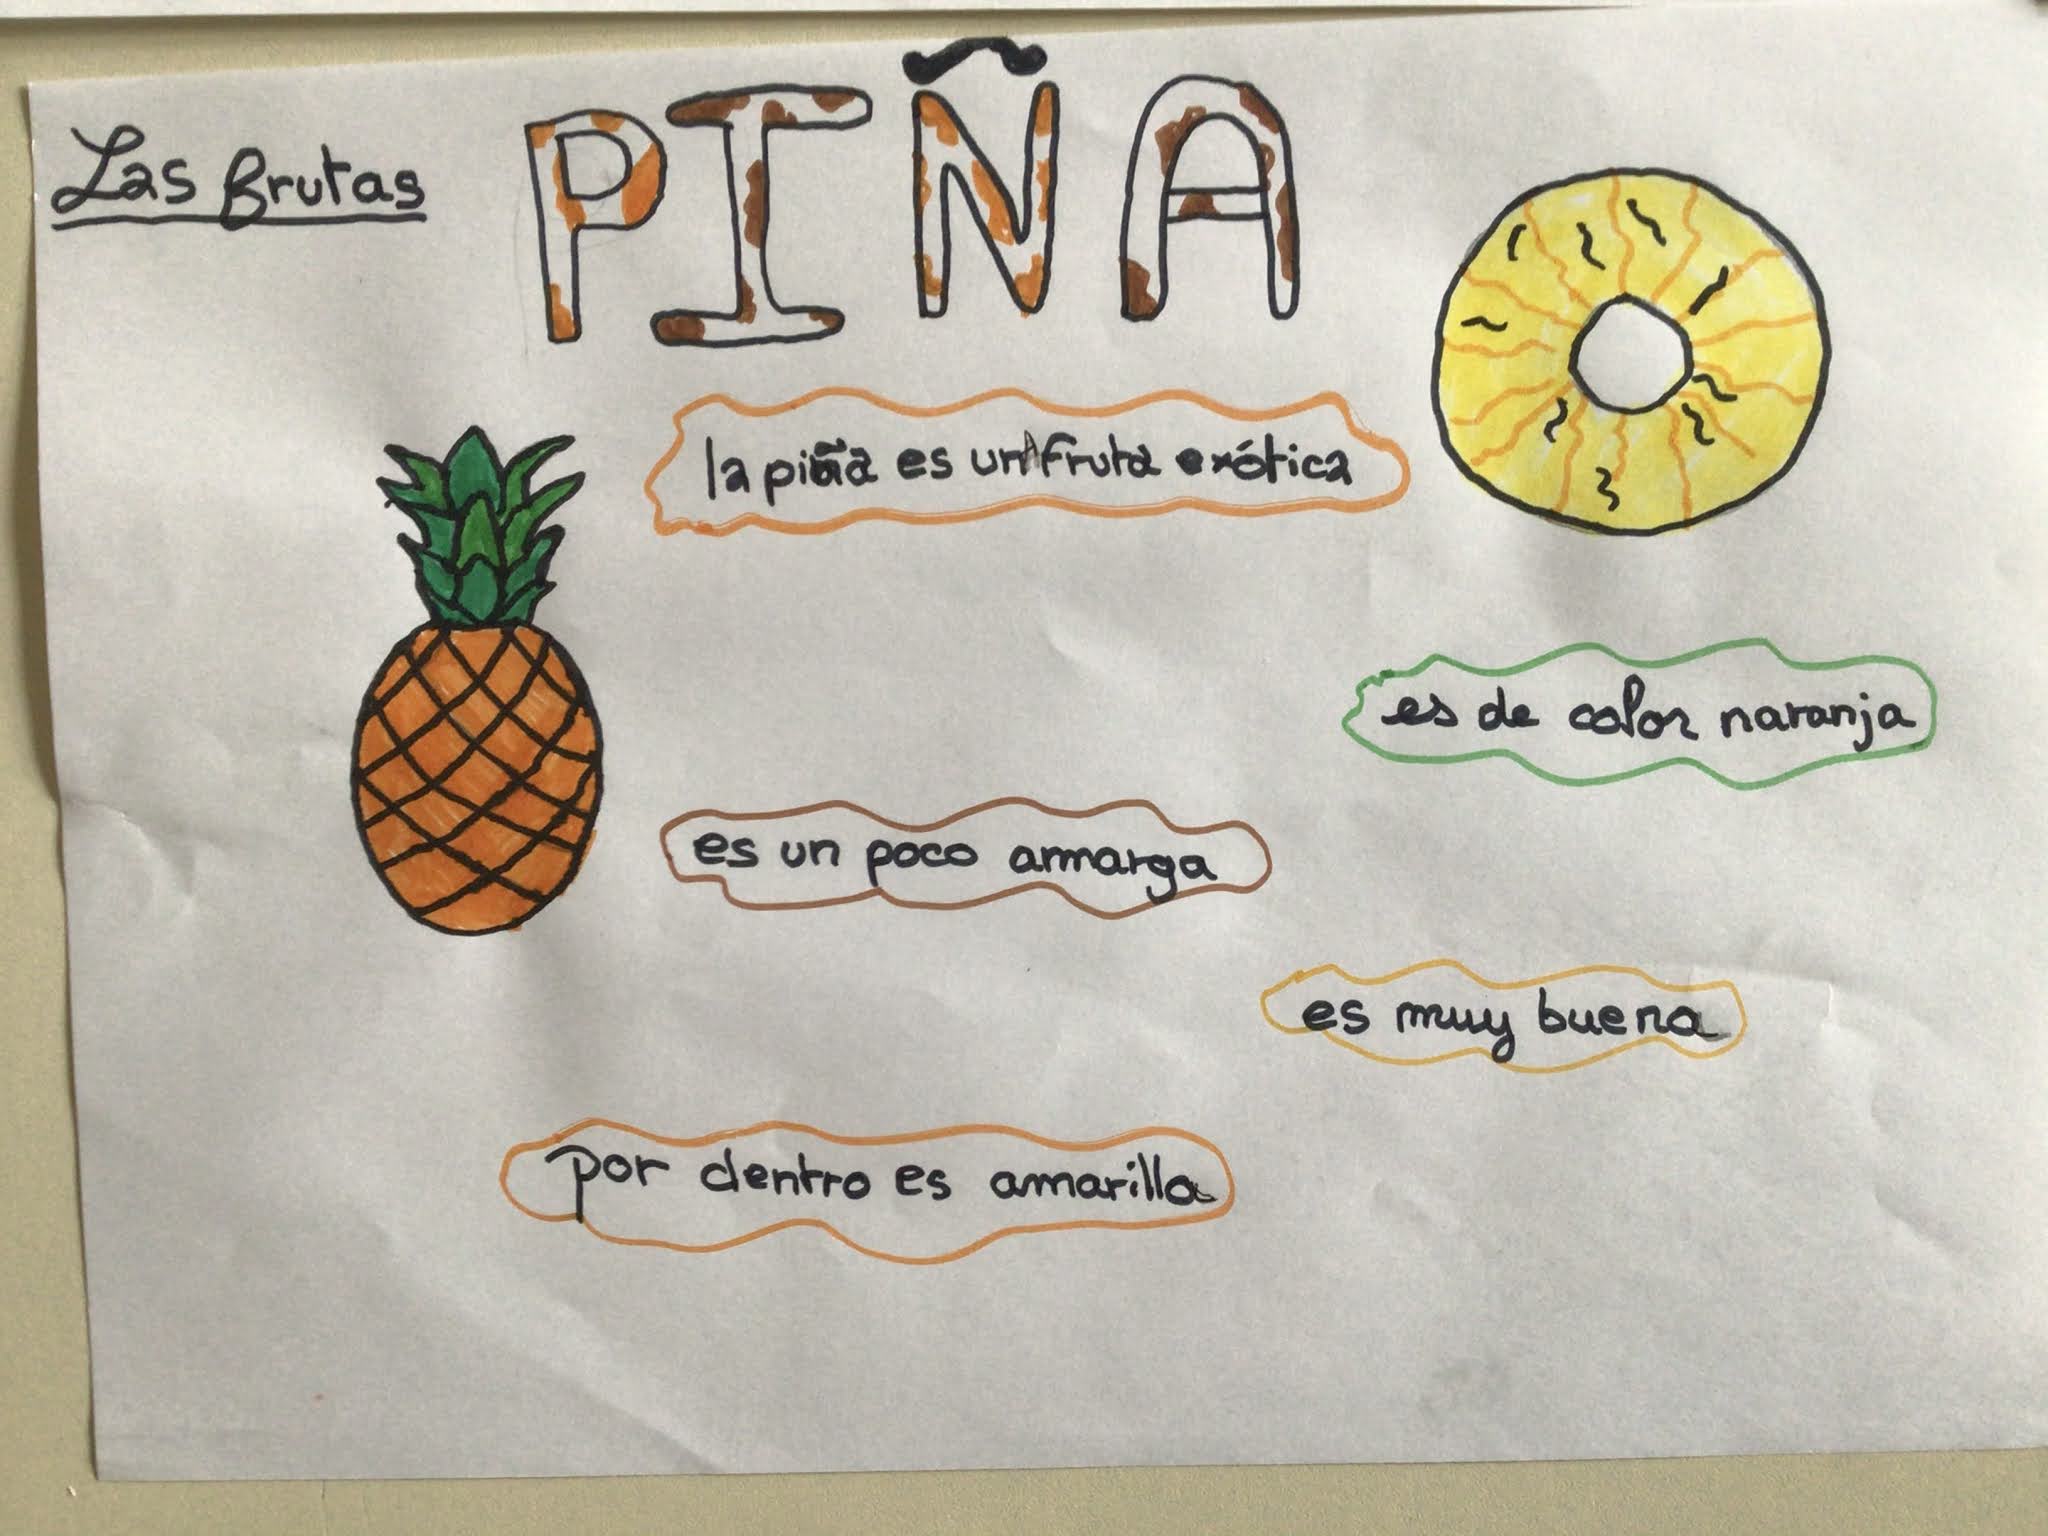 Las frutas
PIÑA
la piña es un fruta exótica
es de color naranja
es un poco amarga
es muy buena
por dentro es amarilla